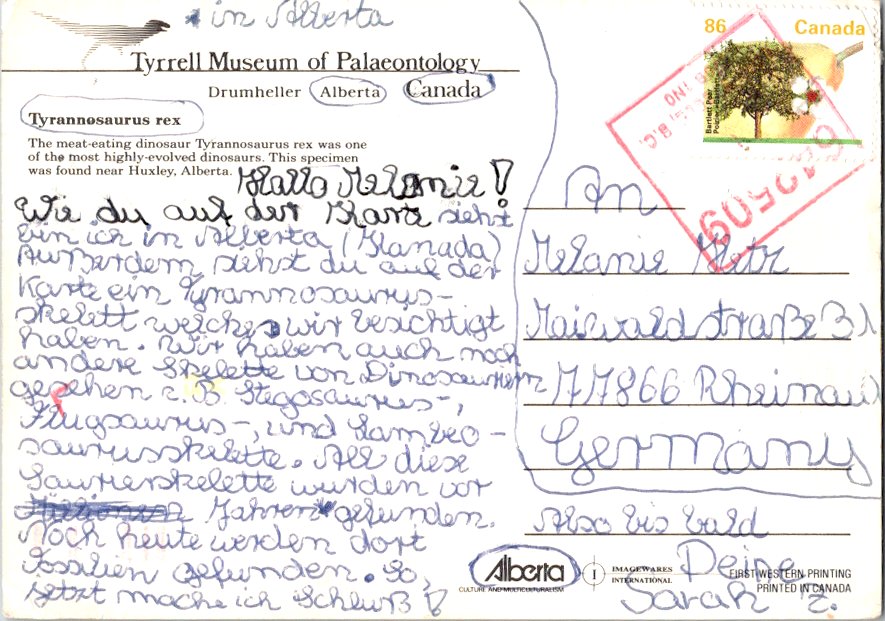 in Alberta
Tyrrell Museum of Palaeontology
Drumheller Alberta Canada
Tyrannosaurus rex
The meat-eating dinosaur Tyrannosaurus rex was one
of the most highly-evolved dinosaurs. This specimen
was found near Huxley, Alberta.
Hallo Melanie!
Wie du auf der Karte siehst
bin ich in Alberta (Kanada)
Außerdem siehst du auf der
Karte ein Tyrannosaurus-
skelett welches wir besichtigt
haben. Wir haben auch noch
andere Skelette von Dinosauriern
gesehen z.B. Stegosaurus-,
Flugsaurus-, und Lambeo-
saurusskelette. All diese
Saurierskelette wurden vor
Jahren gefunden.
Noch heute werden dort
Fossilien gefunden. So,
jetzt mache ich Schluß!
86 Canada
Bartlett Pear
An
Melanie
Maiwaldstraße 31
77866 Rheinau
Germany
Also bis bald
Deine
Sarah Z.
Alberta
CULTURE AND MULTICULTURALISM
I IMAGEWARES
INTERNATIONAL
FIRST WESTERN PRINTING
PRINTED IN CANADA